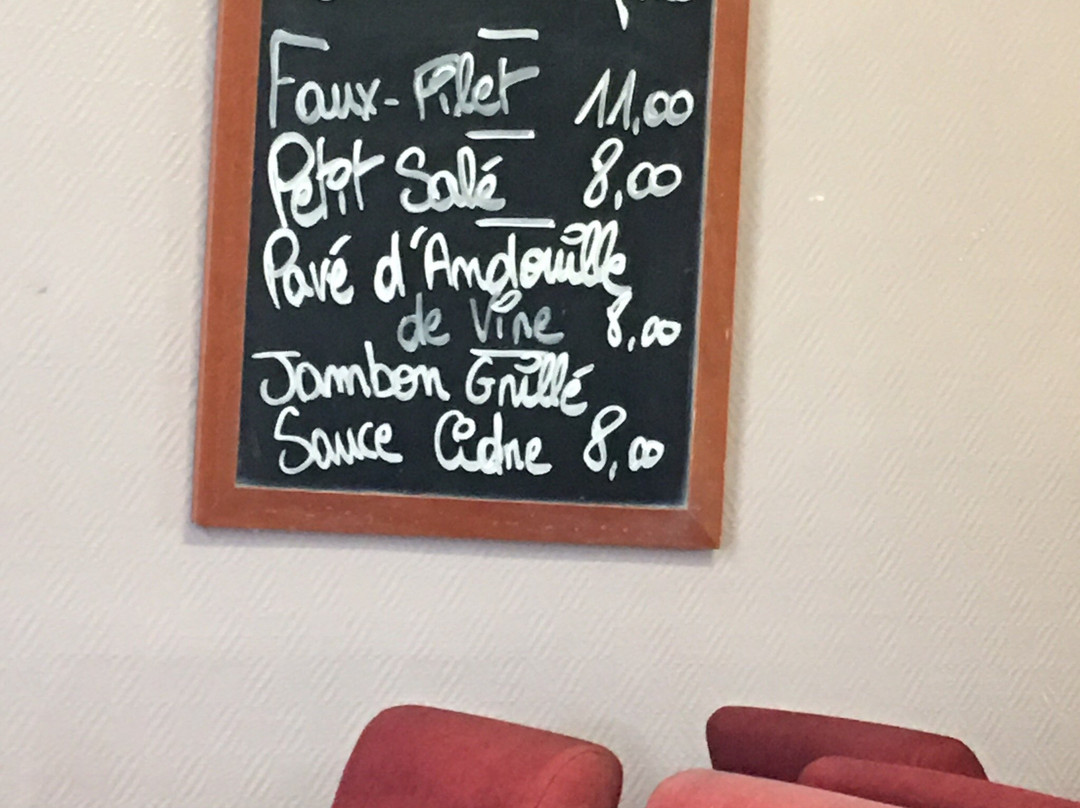 Faux-Filet 11,00
Petit Salé 8,00
Pavé d'Andouille
de Vire 8,00
Jambon Grillé
Sauce Cidre 8,00